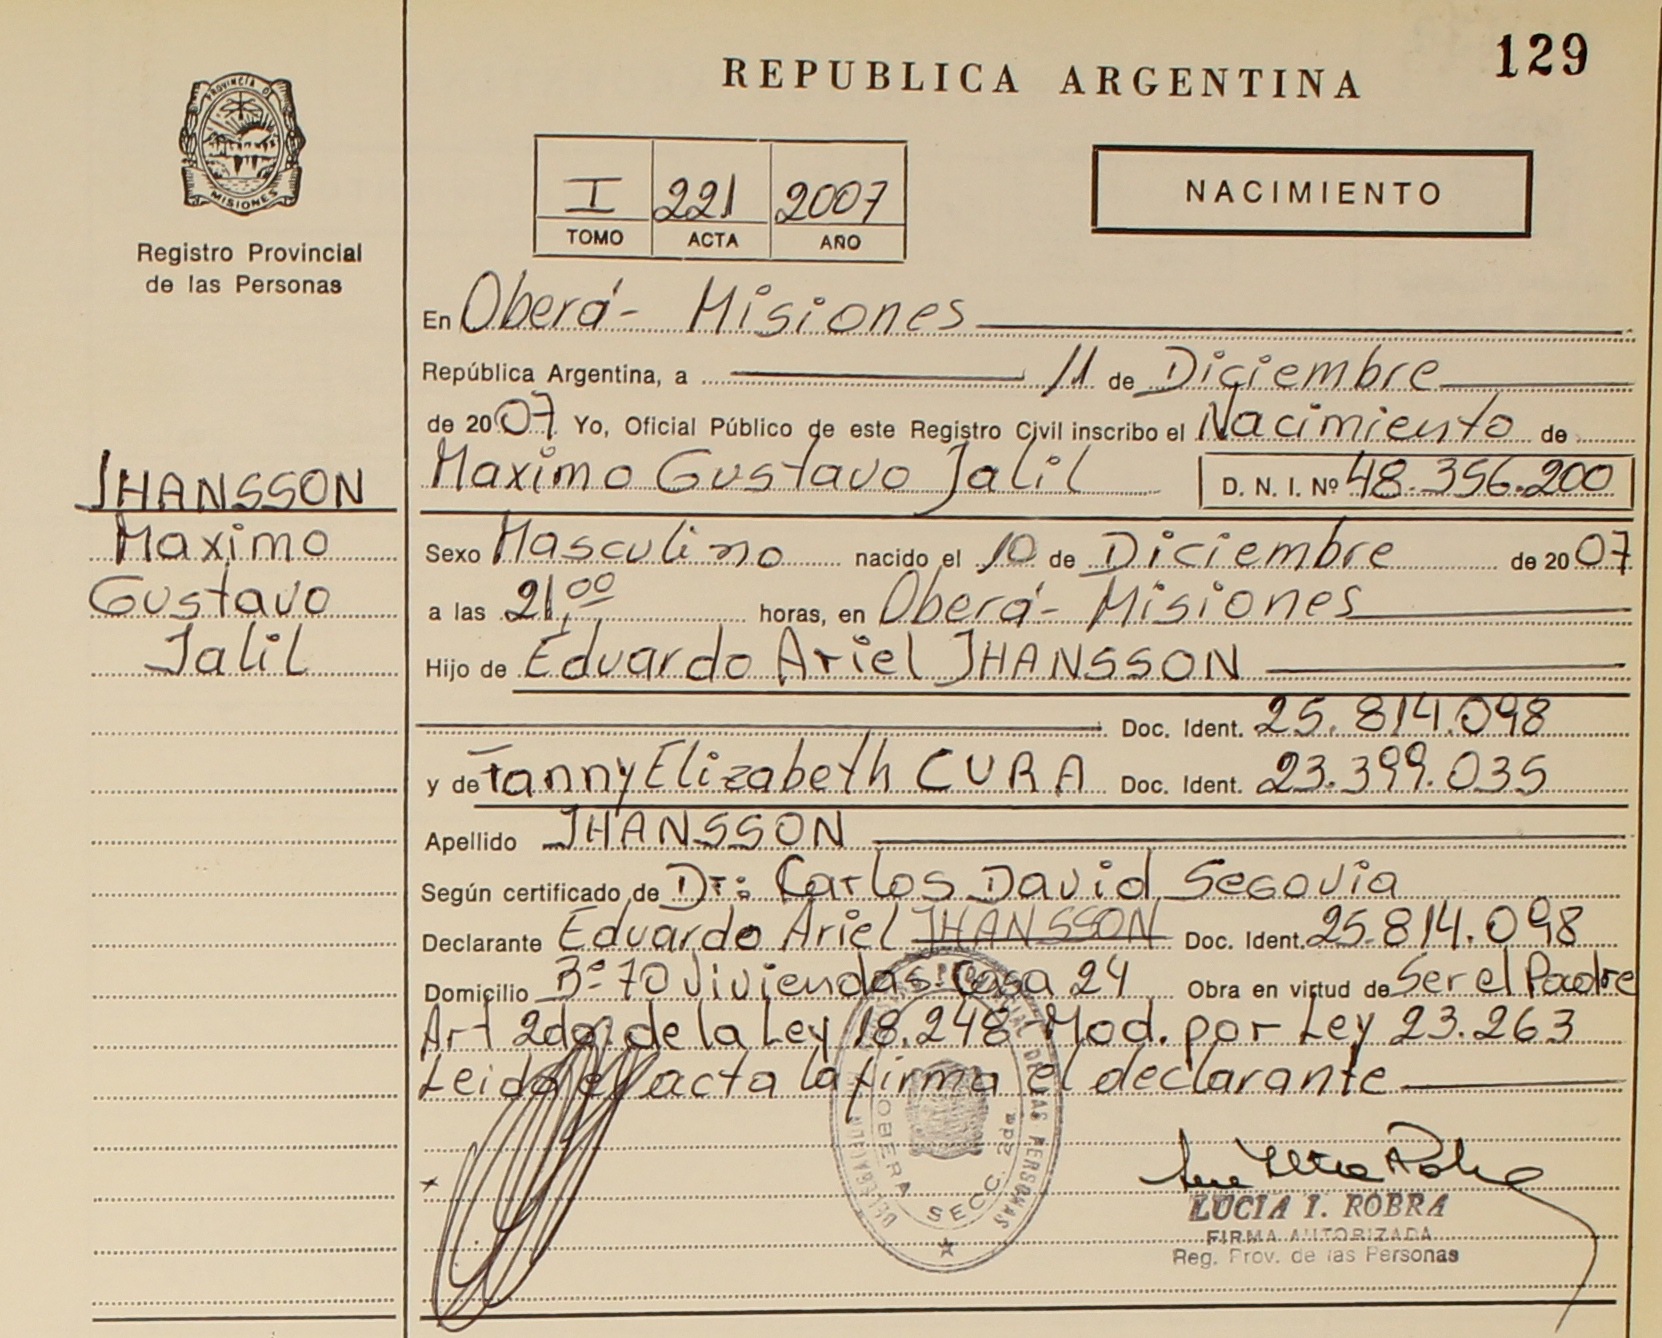 129
REPUBLICA ARGENTINA
PROVINCIA DE
MISIONES
Registro Provincial
de las Personas
I 221 2007
TOMO ACTA AÑO
NACIMIENTO
JHANSSON
Maximo
Gustavo
Jalil
En Oberá - Misiones
República Argentina, a 11 de Diciembre
de 2007 Yo, Oficial Público de este Registro Civil inscribo el Nacimiento de
Maximo Gustavo Jalil D. N. I. Nº 48.356.200
Sexo Masculino nacido el 10 de Diciembre de 2007
a las 21,00 horas, en Oberá - Misiones
Hijo de Eduardo Ariel JHANSSON
Doc. Ident. 25.814.098
y de Fanny Elizabeth CURA Doc. Ident. 23.399.035
Apellido JHANSSON
Según certificado de Dr: Carlos David Segovia
Declarante Eduardo Ariel JHANSSON Doc. Ident. 25.814.098
Domicilio Bº 70 Viviendas Casa 24 Obra en virtud de Ser el Padre
Art 2do de la Ley 18.248 Mod. por Ley 23.263
Leida el acta la firma el declarante
OBERA SECC. 2da
LUCIA I. ROBRA
FIRMA AUTORIZADA
Reg. Prov. de las Personas